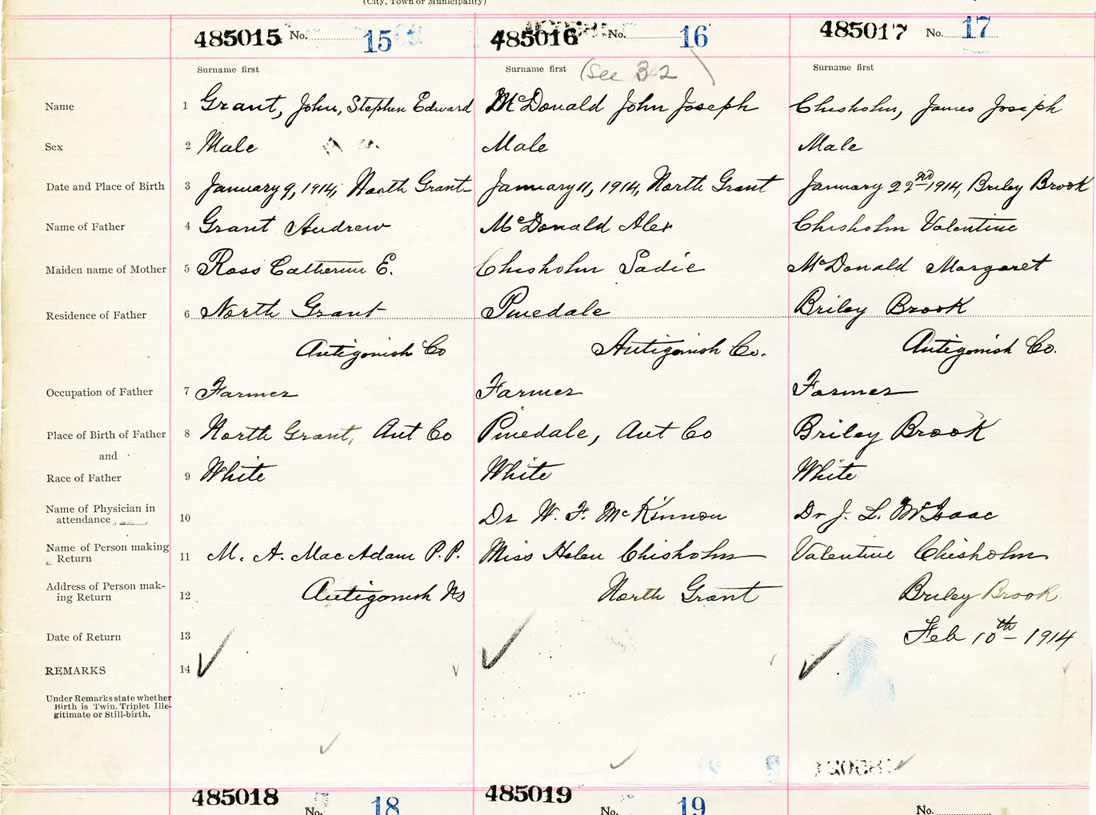 (City, Town or Municipality)
485015 No. 15 485016 No. 16 485017 No. 17
Surname first Surname first (See 32) Surname first
Name 1 Grant, John, Stephen Edward McDonald John Joseph Chisholm, James Joseph
Sex 2 Male Male Male
Date and Place of Birth 3 January 9, 1914, North Grant January 11, 1914, North Grant January 22nd 1914, Briley Brook
Name of Father 4 Grant Andrew McDonald Alex Chisholm Valentine
Maiden name of Mother 5 Ross Catherine E. Chisholm Sadie McDonald Margaret
Residence of Father 6 North Grant Pinedale Briley Brook
Antigonish Co Antigonish Co. Antigonish Co.
Occupation of Father 7 Farmer Farmer Farmer
Place of Birth of Father 8 North Grant, Ant Co Pinedale, Ant Co Briley Brook
and
Race of Father 9 White White White
Name of Physician in
attendance 10 Dr W. F. McKinnon Dr J. L. McIsaac
Name of Person making
Return 11 M. A. MacAdam P.P. Miss Helen Chisholm Valentine Chisholm
Address of Person mak-
ing Return 12 Antigonish Ns North Grant Briley Brook
Date of Return 13 Feb 10th 1914
REMARKS 14
Under Remarks state whether
Birth is Twin, Triplet Ille-
gitimate or Still-birth.
485018 No. 18 485019 No. 19 No.